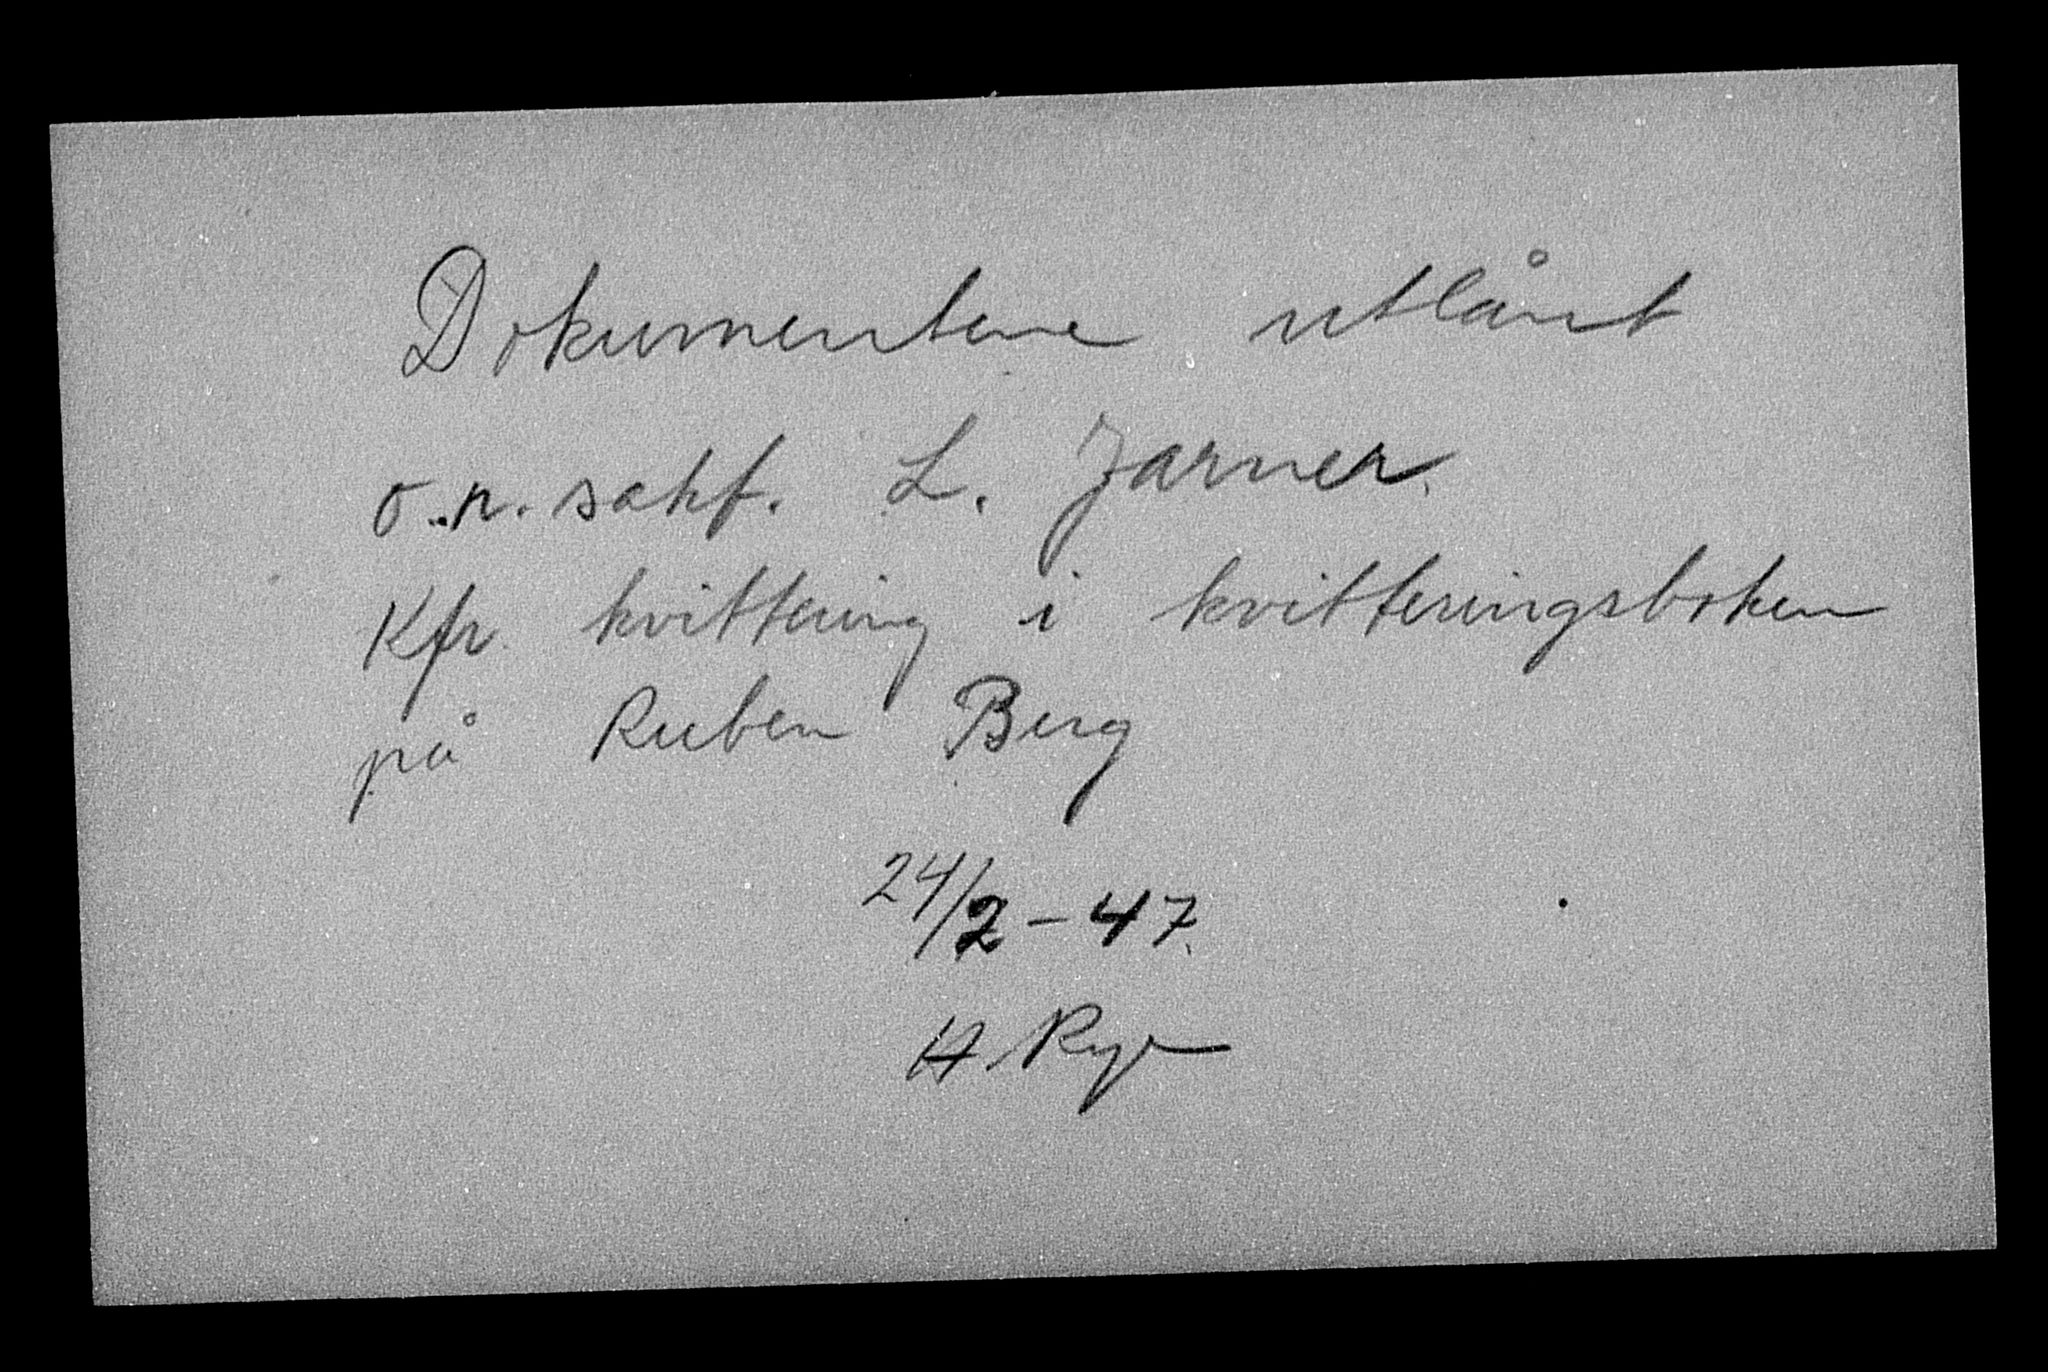 Dokumentene utlånt
o.r.sakf. L. Jarner.
Kfr. kvittering i kvitteringsboken
på Ruben Berg
24/2-47.
H. Rye